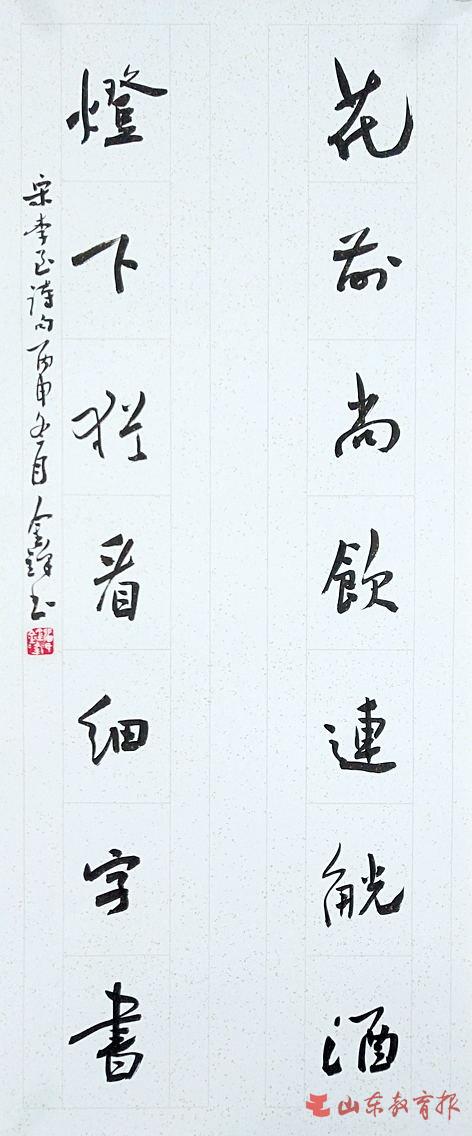 花前尚飲連觥酒
燈下猶看細字書
宋李至詩句丙申冬月金鐸书
山东教育报